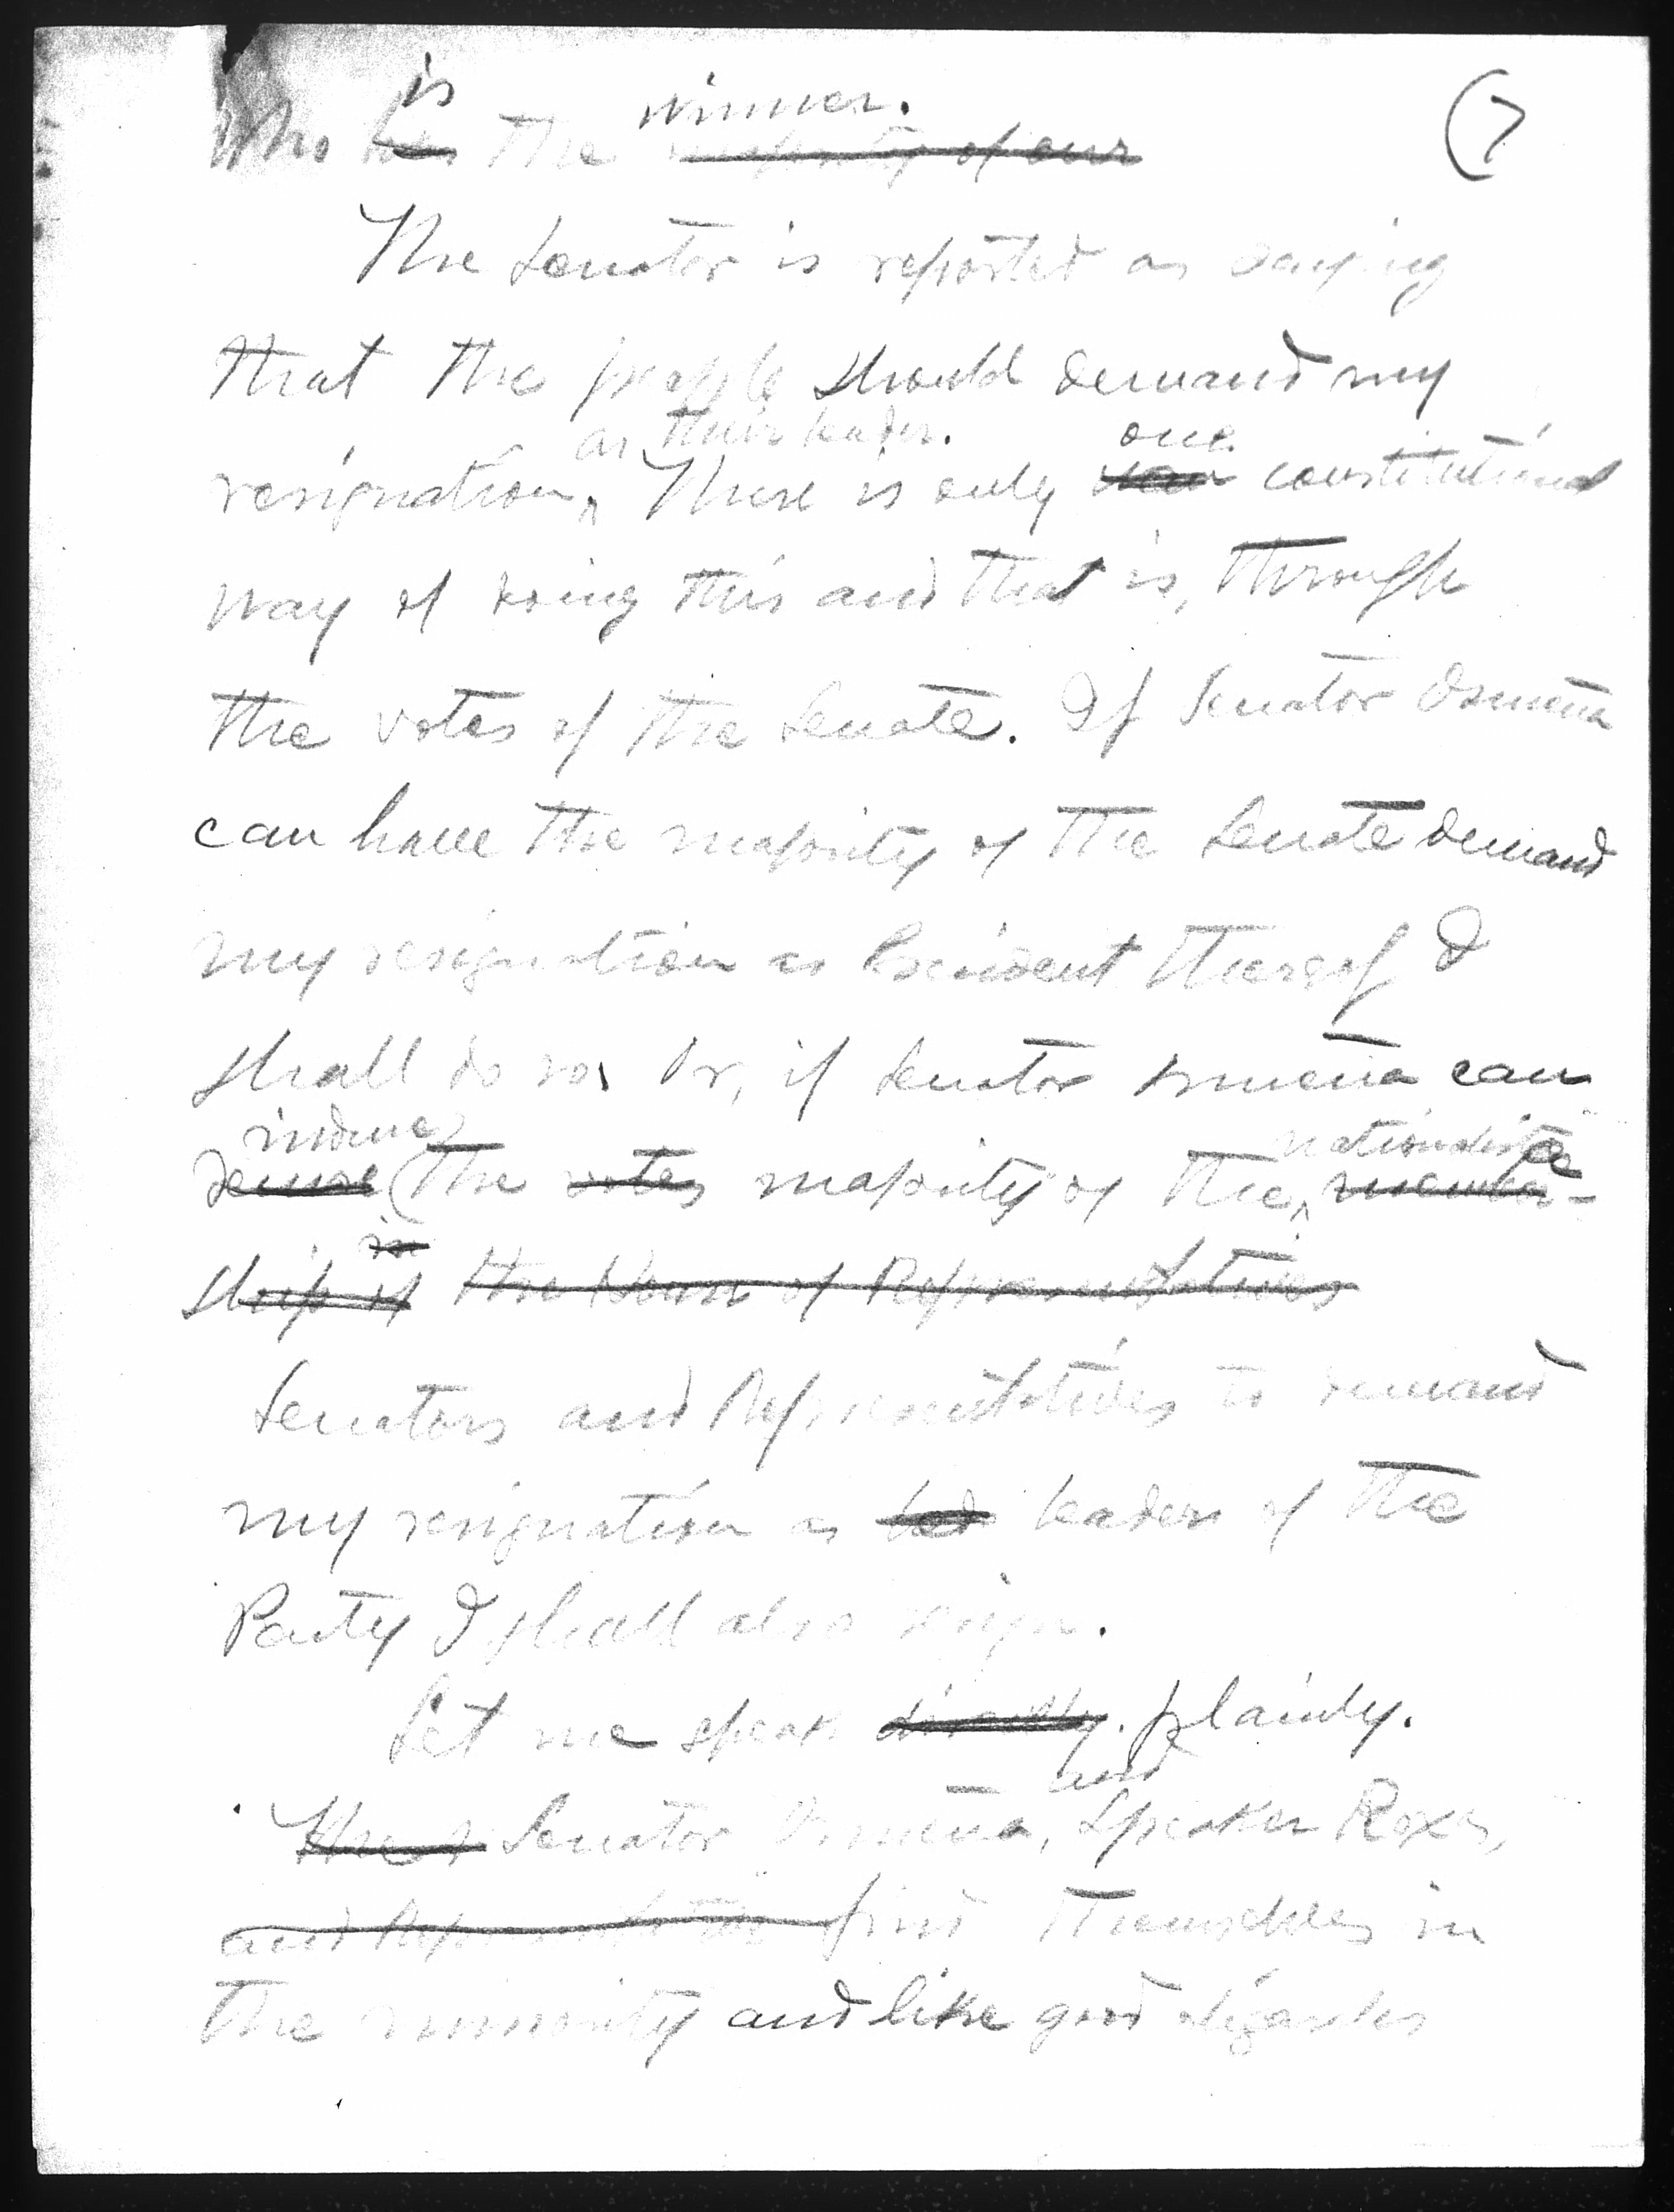 is winner.
Who has the majority of our
(7
The Senator is reported as saying
that the people should demand my
as their leader. one
resignation. There is only constitutional
way of doing this and that is, through
the votes of the Senate. If Senator Osmeña
can have the majority of the Senate demand
my resignation as President thereof I
shall do so. Or, if Senator Osmeña can
induce nationalista
secure the votes majority of the member-
in
ship of the House of Representatives
Senators and Representatives to demand
my resignation as leader of the
Party I shall also resign.
Let me speak directly. plainly.
and
Senator Osmeña, Speaker Roxas,
and Representative find themselves in
the minority and like good